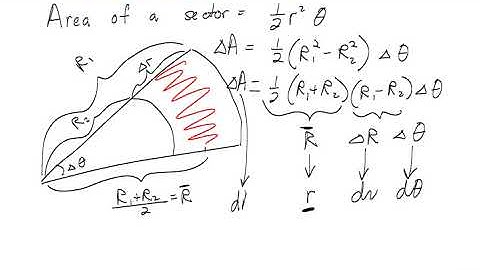 Area of a sector = 1/2 r² θ
ΔA = 1/2 (R₁² - R₂²) Δθ
ΔA = 1/2 (R₁+R₂) (R₁-R₂) Δθ
R₁
Δr
R₂
Δθ
R̄ ΔR Δθ
(R₁+R₂)/2 = R̄
r dr dθ